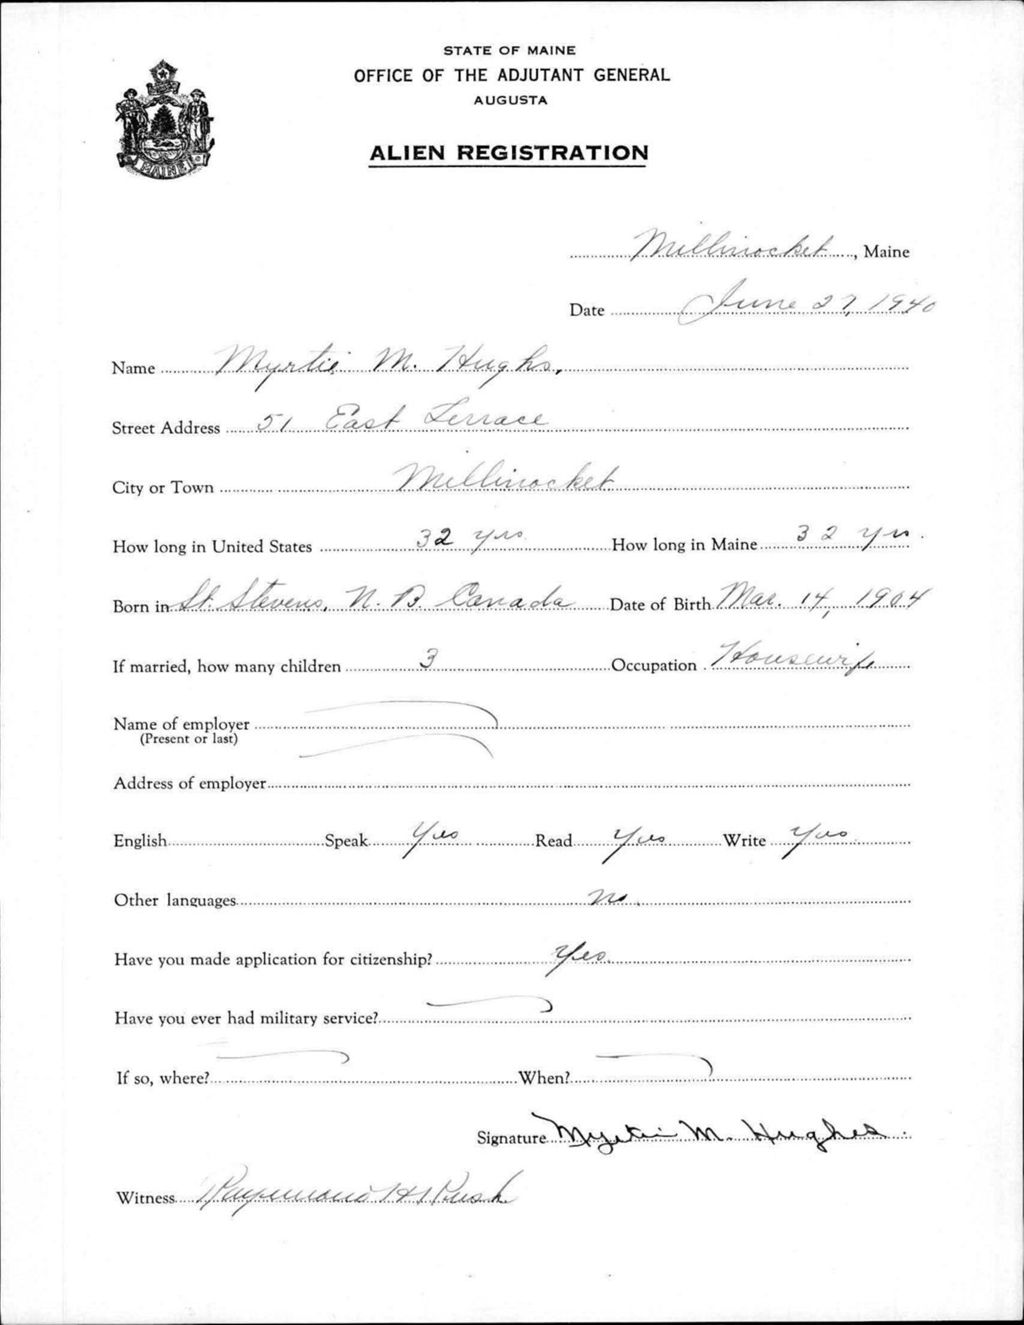 STATE OF MAINE
OFFICE OF THE ADJUTANT GENERAL
AUGUSTA
ALIEN REGISTRATION
MAINE
Millinocket, Maine
Date June 27, 1940
Name Myrtie M. Hughs.
Street Address 51 East Terrace
City or Town Millinocket
How long in United States 32 yrs How long in Maine 32 yrs.
Born in St. Stevens, N. B. Canada Date of Birth Mar. 14, 1904
If married, how many children 3 Occupation Housewife
Name of employer
(Present or last)
Address of employer
English Speak Yes Read Yes Write Yes
Other languages no.
Have you made application for citizenship? Yes.
Have you ever had military service?
If so, where? When?
Signature Myrtie M. Hughes.
Witness Raymond H Rush